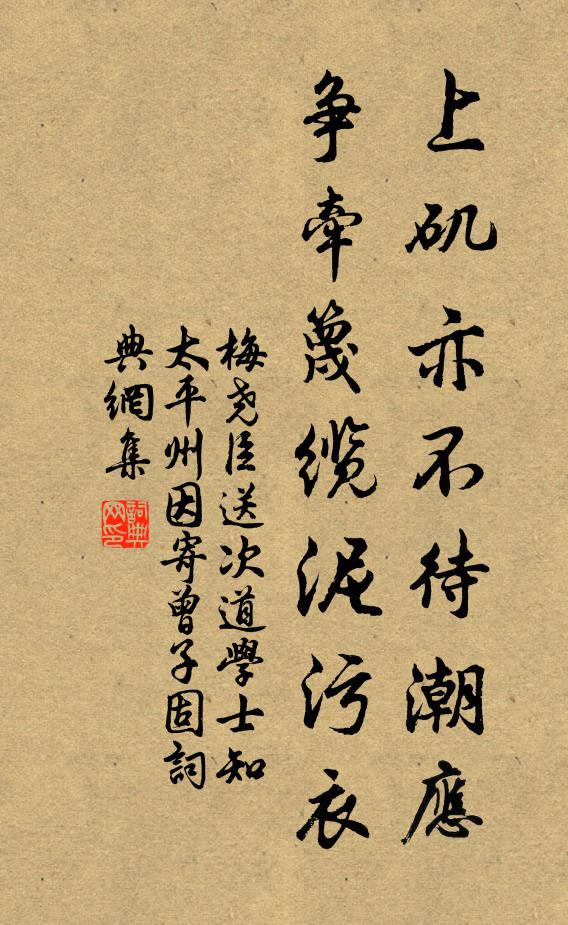 上矶亦不待潮應
争牽篾缆泥污衣
梅尧臣送次道學士知
太平州因寄曾子固詞
典網集
詞典
网印